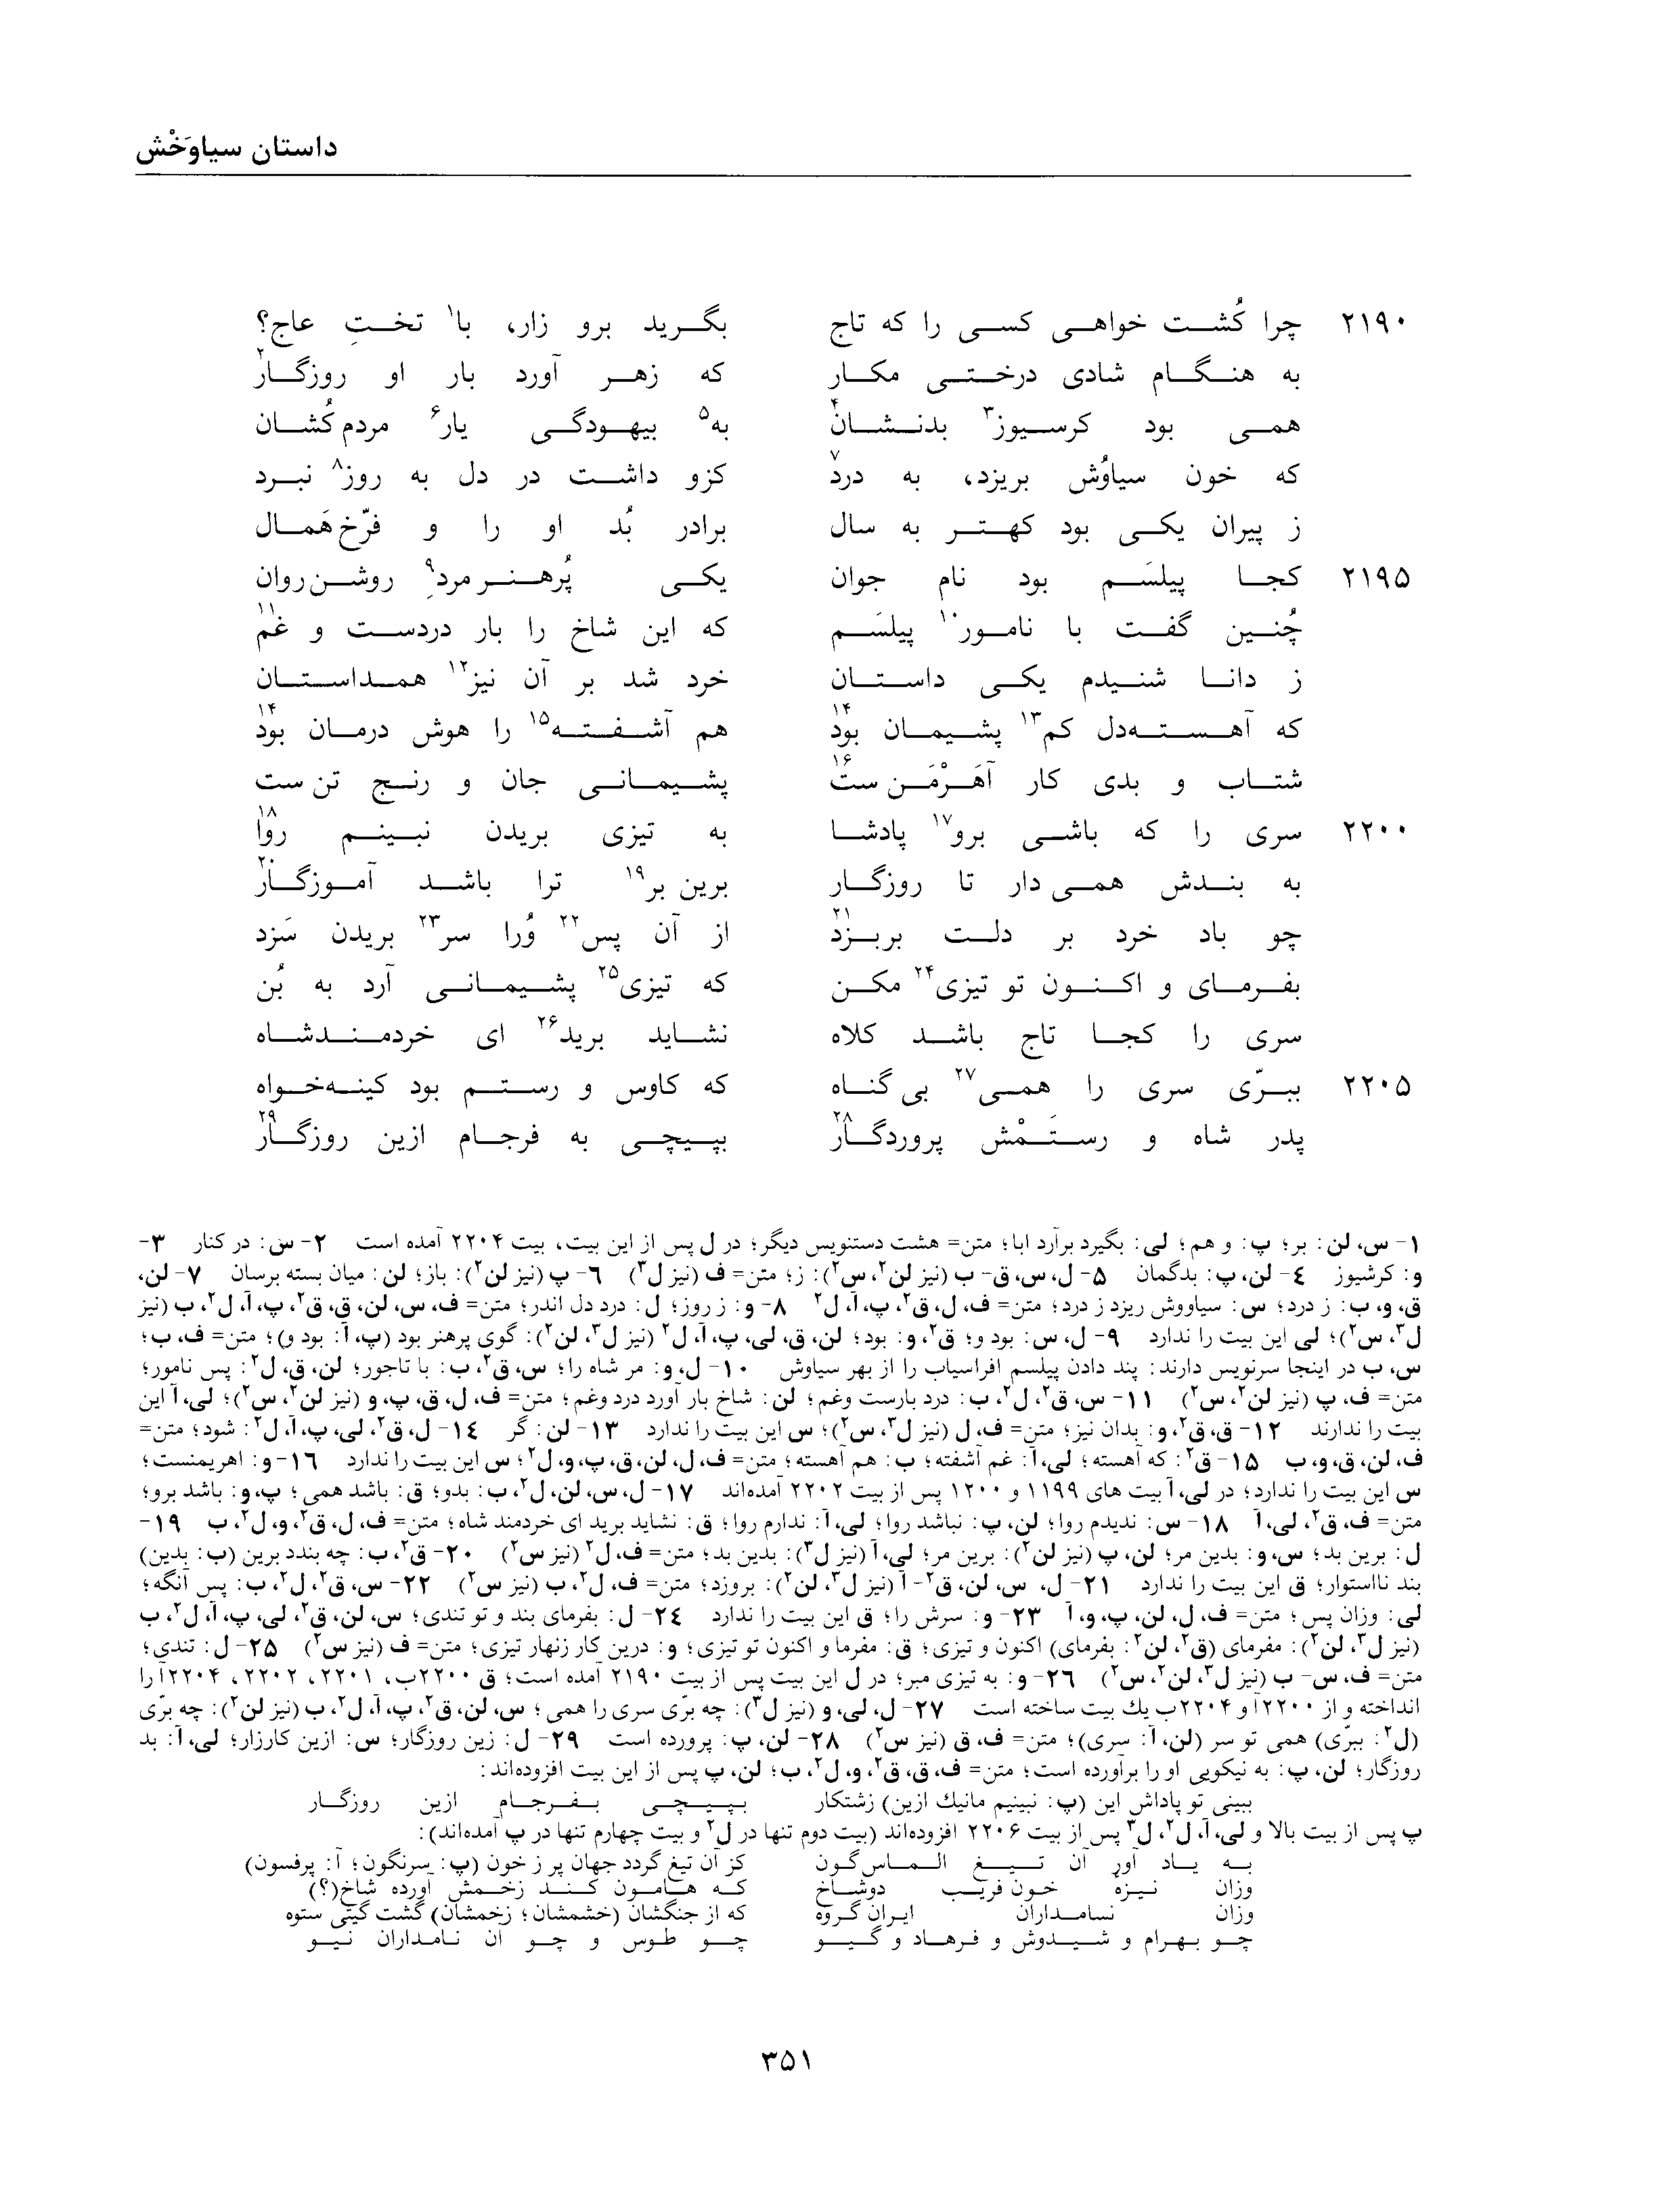 داستان سیاوَخْش
۲۱۹۰ چرا کُشت خواهی کسی را که تاج بگرید برو زار، با۱ تختِ عاج؟
به هنگام شادی درختی مکار که زهر آورد بار او روزگار۲
همی بود کرسیوز۳ بدنشان۴ به۵ بیهودگی یار۶ مردم‌کُشان
که خون سیاوُش بریزد، به درد۷ کزو داشت در دل به روز۸ نبرد
ز پیران یکی بود کهتر به سال برادر بُد او را و فرّخ‌هَمال
۲۱۹۵ کجا پیلسَم بود نام جوان یکی پُرهنر مردِ۹ روشن‌روان
چُنین گفت با نامور۱۰ پیلسَم که این شاخ را بار دردست و غم۱۱
ز دانا شنیدم یکی داستان خرد شد بر آن نیز۱۲ همداستان
که آهسته‌دل کم۱۳ پشیمان بود۱۴ هم آشفته۱۵ را هوش درمان بود۱۴
شتاب و بدی کار آهَرْمَن‌ست۱۶ پشیمانی جان و رنج تن‌ست
۲۲۰۰ سری را که باشی برو۱۷ پادشا به تیزی بریدن نبینم روا۱۸
به بندش همی‌دار تا روزگار برین بر۱۹ ترا باشد آموزگار۲۰
چو باد خرد بر دلت بربزد۲۱ از آن پس۲۲ وُرا سر۲۳ بریدن سَزد
بفرمای و اکنون تو تیزی۲۴ مکن که تیزی۲۵ پشیمانی آرد به بُن
سری را کجا تاج باشد کلاه نشاید برید۲۶ ای خردمندشاه
۲۲۰۵ ببرّی سری را همی۲۷ بی‌گناه که کاوس و رستم بود کینه‌خواه
پدر شاه و رستَمْش پروردگار۲۸ بپیچی به فرجام ازین روزگار۲۹
۱- س، لن: بر؛ پ: و هم؛ لی: بگیرد برآرد ابا؛ متن= هشت دستنویس دیگر؛ در ل پس از این بیت، بیت ۲۲۰۴ آمده است ۲- س: در کنار ۳-
و: کرشیوز ٤- لن، پ: بدگمان ۵- ل، س، ق- ب (نیز لن۲، س۲): ز؛ متن= ف (نیز ل۳) ۶- پ (نیز لن۲): باز؛ لن: میان بسته برسان ۷- لن،
ق، و، ب: ز درد؛ س: سیاووش ریزد ز درد؛ متن= ف، ل، ق۲، پ، آ، ل۲ ۸- و: ز روز؛ ل: درد دل اندر؛ متن= ف، س، لن، ق، ق۲، پ، آ، ل۲، ب (نیز
ل۳، س۲)؛ لی این بیت را ندارد ۹- ل، س: بود و؛ ق۲، و: بود؛ لن، ق، لی، پ، آ، ل۲ (نیز ل۳، لن۲): گوی پرهنر بود (پ، آ: بود و)؛ متن= ف، ب؛
س، ب در اینجا سرنویس دارند: پند دادن پیلسم افراسیاب را از بهر سیاوش ۱۰- ل، و: مر شاه را؛ س، ق۲، ب: با تاجور؛ لن، ق، ل۲: پس نامور؛
متن= ف، پ (نیز لن۲، س۲) ۱۱- س، ق۲، ل۲، ب: درد بارست وغم؛ لن: شاخ بار آورد درد وغم؛ متن= ف، ل، ق، پ، و (نیز لن۲، س۲)؛ لی، آ این
بیت را ندارند ۱۲- ق، ق۲، و: بدان نیز؛ متن= ف، ل (نیز ل۳، س۲)؛ س این بیت را ندارد ۱۳- لن: گر ١٤- ل، ق۲، لی، پ، آ، ل۲: شود؛ متن=
ف، لن، ق، و، ب ۱۵- ق۲: که آهسته؛ لی، آ: غم آشفته؛ ب: هم آهسته؛ متن= ف، ل، لن، ق، پ، و، ل۲؛ س این بیت را ندارد ۱۶- و: اهریمنست؛
س این بیت را ندارد؛ در لی، آ بیت های ۱۱۹۹ و ۱۲۰۰ پس از بیت ۲۲۰۲ آمده‌اند ۱۷- ل، س، لن، ل۲، ب: بدو؛ ق: باشد همی؛ پ، و: باشد برو؛
متن= ف، ق۲، لی، آ ۱۸- س: ندیدم روا؛ لن، پ: نباشد روا؛ لی، آ: ندارم روا؛ ق: نشاید برید ای خردمند شاه؛ متن= ف، ل، ق۲، و، ل۲، ب ۱۹-
ل: برین بد؛ س، و: بدین مر؛ لن، پ (نیز لن۲): برین مر؛ لی، آ (نیز ل۳): بدین بد؛ متن= ف، ل۲ (نیز س۲) ۲۰- ق۲، ب: چه بندد برین (ب: بدین)
بند نااستوار؛ ق این بیت را ندارد ۲۱- ل، س، لن، ق۲- آ (نیز ل۳، لن۲): بروزد؛ متن= ف، ل۲، ب (نیز س۲) ۲۲- س، ق۲، ل۲، ب: پس آنگه؛
لی: وزان پس؛ متن= ف، ل، لن، پ، و، آ ۲۳- و: سرش را؛ ق این بیت را ندارد ٢٤- ل: بفرمای بند و تو تندی؛ س، لن، ق۲، لی، پ، آ، ل۲، ب
(نیز ل۳، لن۲): مفرمای (ق۲، لن۲: بفرمای) اکنون و تیزی؛ ق: مفرما و اکنون تو تیزی؛ و: درین کار زنهار تیزی؛ متن= ف (نیز س۲) ۲۵- ل: تندی؛
متن= ف، س- ب (نیز ل۳، لن۲، س۲) ۲۶- و: به تیزی مبر؛ در ل این بیت پس از بیت ۲۱۹۰ آمده است؛ ق ۲۲۰۰ب، ۲۲۰۱، ۲۲۰۲، ۲۲۰۴آ را
انداخته و از ۲۲۰۰آ و ۲۲۰۴ب یك بیت ساخته است ۲۷- ل، لی، و (نیز ل۳): چه برّی سری را همی؛ س، لن، ق۲، پ، آ، ل۲، ب (نیز لن۲): چه برّی
(ل۲: ببرّی) همی تو سر (لن، آ: سری)؛ متن= ف، ق (نیز س۲) ۲۸- لن، پ: پرورده است ۲۹- ل: زین روزگار؛ س: ازین کارزار؛ لی، آ: بد
روزگار؛ لن، پ: به نیکویی او را برآورده است؛ متن= ف، ق، ق۲، و، ل۲، ب؛ لن، پ پس از این بیت افزوده‌اند:
ببینی تو پاداش این (پ: نبینیم مانیك ازین) زشتکار بپیچی بفرجام ازین روزگار
پ پس از بیت بالا و لی، آ، ل۲، ل۳ پس از بیت ۲۲۰۶ افزوده‌اند (بیت دوم تنها در ل۲ و بیت چهارم تنها در پ آمده‌اند):
به یاد آور آن تیغ الماس‌گون کز آن تیغ گردد جهان پر ز خون (پ: سرنگون؛ آ: پرفسون)
وزان نیزهٔ خون‌فریب دوشاخ که هامون کند زخمش آورده شاخ(؟)
وزان نسامداران ایران‌گروه که از جنگشان (خشمشان؛ زخمشان) گشت گیتی ستوه
چو بهرام و شیدوش و فرهاد و گیو چو طوس و چو آن نامداران نیو
۳۵۱